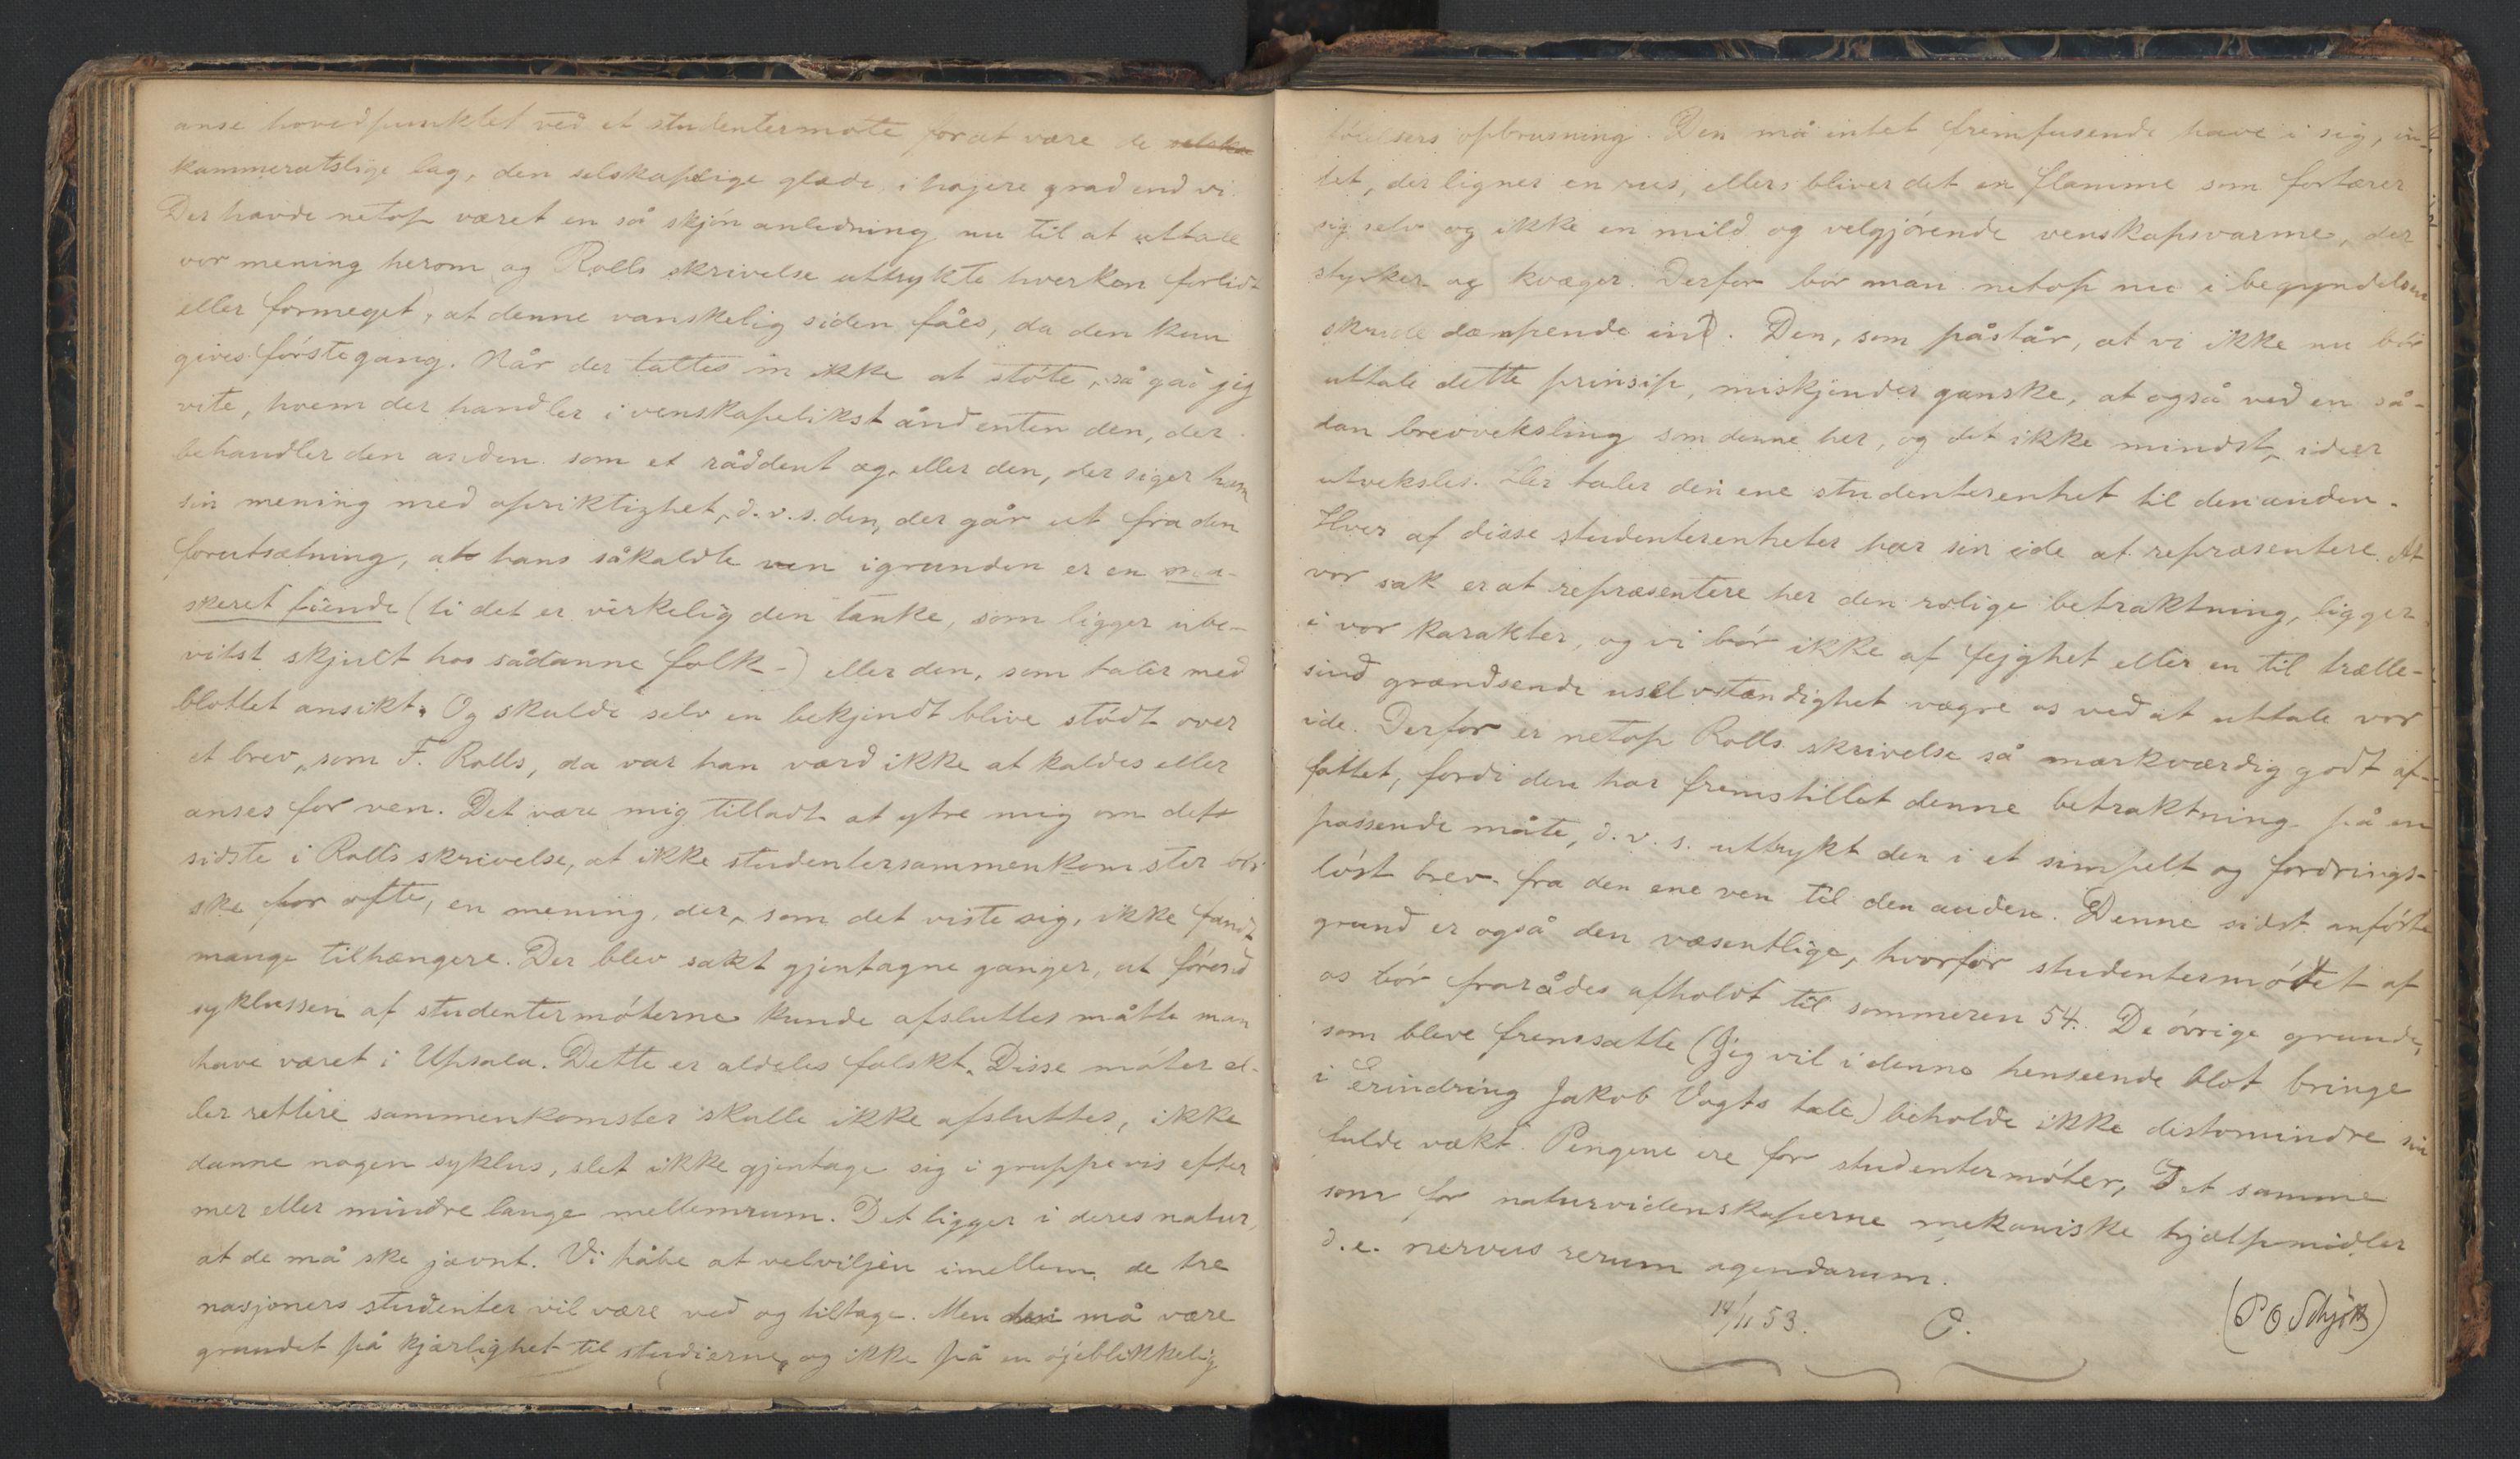 anse hovedpunktet ved et studentermøte forat være de selska
kammeratslige lag, den selskaplige glæde, i højere grad end vi.
Der havde netop været en så skjön anledning nu til at uttale
vor mening herom og Rolls skrivelse uttrykte hverken forlidt
eller formeget, at denne vanskelig siden fåes, da den kun
gives förstegang. Når der taltes om ikke at stöte, så gad jeg
vite, hvem der handler i venskapelikst ånd enten den, der
behandler den anden som et råddent æg, eller den, der siger ham
sin mening med opriktighet, d.v.s. den, der går ut fra den
forutsætning, at hans såkaldte ven igrunden er en ma-
skeret fiende (ti det er virkelig den tanke, som ligger ube-
vitst skjult hos sådanne folk-) eller den, som taler med
blottet ansikt. Og skulde selv en bekjendt blive stödt over
et brev, som F. Rolls, da var han værd ikke at kaldes eller
anses for ven. Det være mig tilladt at ytre mig om det
sidste i Rolls skrivelse, at ikke studentersammenkomster bör
ske for ofte, en mening, der, som det viste sig, ikke fandt
mange tilhængere. Der blev sakt gjentagne ganger, at förend
syklussen af studentermöterne kunde afsluttes måtte man
have været i Upsala. Dette er aldeles falskt. Disse möter el-
ler rettere sammenkomster skulle ikke afsluttes, ikke
danne nogen syklus, slet ikke gjentage sig i gruppevis efter
mer eller mindre lange mellemrum. Det ligger i deres natur,
at de må ske jævnt. Vi håbe at velviljen imellem de tre
nasjoners studenter vil være ved og tiltage. Men den må være
grundet på kjærlighet til studierne, og ikke på en öjeblikkelig
følelsers opbrusning. Den må intet fremfusende have i sig, in-
tet, der ligner en rus, ellers bliver det en flamme som fortærer
sig selv og ikke en mild og velgjörende venskapsvarme, der
styrker og kvæger. Derfor bör man netop nu i begyndelsen
skride dæmpende ind. Den, som påstår, at vi ikke nu bör
uttale dette prinsip, miskjender ganske, at også ved en så-
dan brevveksling som denne her, og det ikke mindst, ideer
utveksles. Her taler den ene studenterenhet til den anden.
Hver af disse studenterenheter har sin ide at repræsentere. At
vor sak er at repræsentere her den rolige betraktning, ligger
i vor karakter, og vi bör ikke af fejghet eller en til trælle-
sind grændsende uselvstændighet vægre os ved at uttale vor
ide. Derfor er netop Rolls skrivelse så mærkværdig godt af-
fattet, fordi den har fremstillet denne betraktning på en
passende måte, d.v.s. uttrykt den i et simpelt og fordrings-
löst brev fra den ene ven til den anden. Denne sidst anförte
grund er også den væsentlige, hvorfor studentermödet af
os bör frarådes afholdt til sommeren 54. De övrige grunde,
som bleve fremsatte (Jeg vil i denne henseende blot bringe
i Erindring Jakob Vogts tale) beholde ikke distomindre sin
fulde vækt. Pengene ere for studentermöter, Det samme
som for naturvidenskaperne mekaniske hjælpmidler
d.e. nervus rerum agendarum.
14/11 53. P. (P O Schjött)